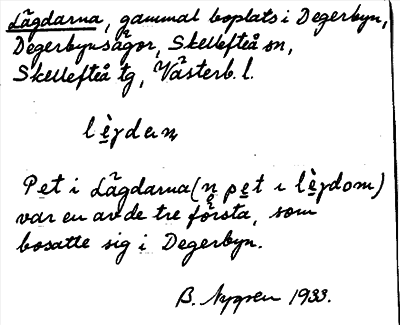 Lägdarna, gammal boplats i Degerbyn,
Degerbynsägor, Skellefteå sn,
Skellefteå tg, Västerb. l.
lèɡdaɳ
Pet i Lägdarna (n pet ı lèɡdom)
var en av de tre första, som
bosatte sig i Degerbyn.
B. Nygren 1933.